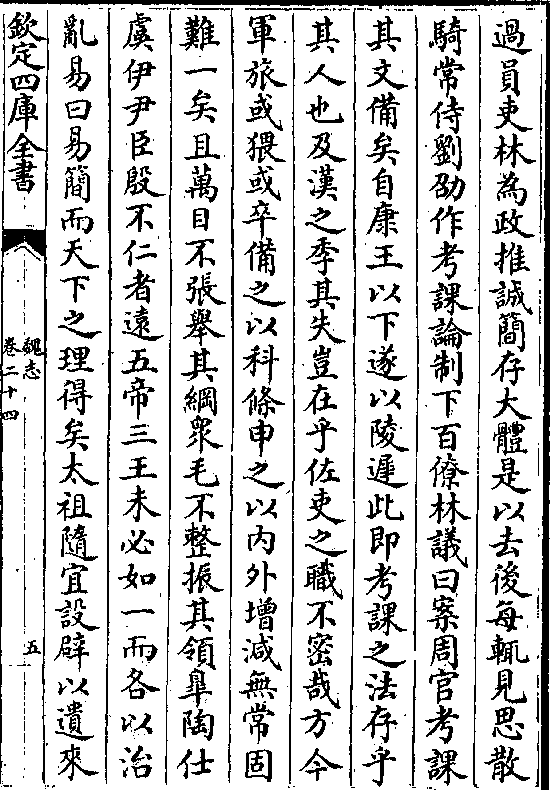 過員吏林為政推誠簡存大體是以去後每輒見思散
騎常侍劉劭作考課論制下百僚林議曰案周官考課
其文備矣自康王以下遂以陵遲此即考課之法存乎
其人也及漢之季其失豈在乎佐吏之職不密哉方今
軍旅或猥或卒備之以科條申之以內外增減無常固
難一矣且萬目不張舉其綱眾毛不整振其領臯陶仕
虞伊尹臣殷不仁者遠五帝三王未必如一而各以治
亂易曰易簡而天下之理得矣太祖隨宜設辟以遺來
欽定四庫全書
魏志
卷二十四
五